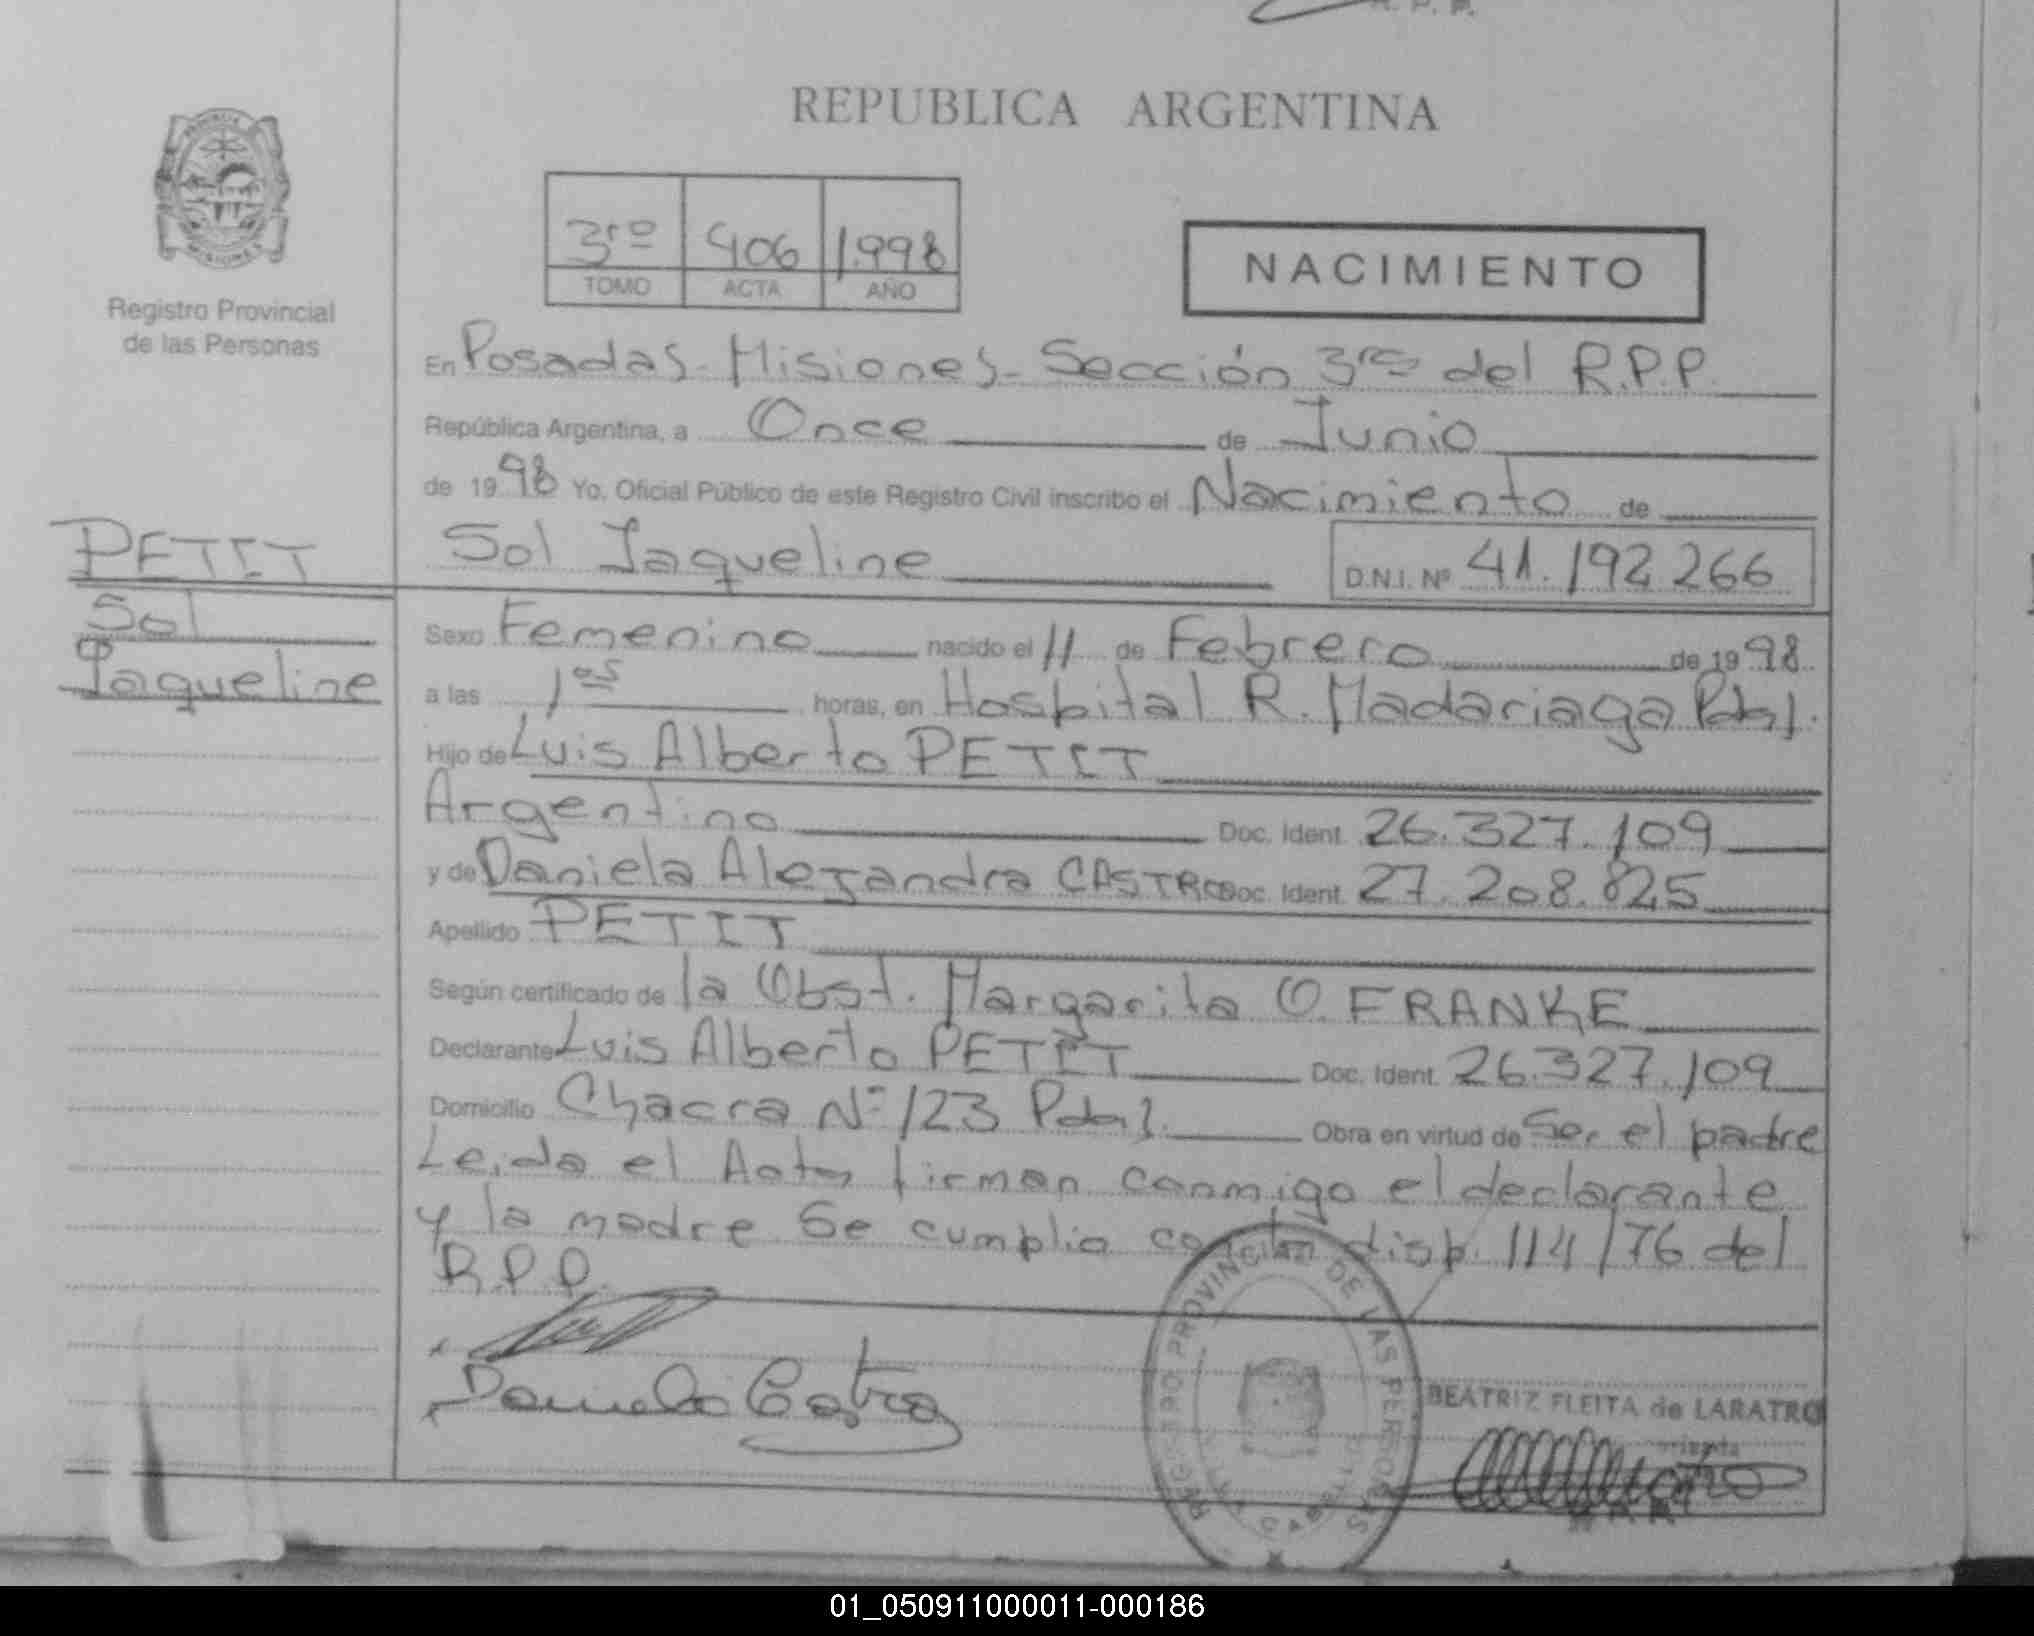 R. P. P.
REPUBLICA ARGENTINA
3ro 406 1.998
TOMO ACTA AÑO
NACIMIENTO
Registro Provincial
de las Personas
En Posadas - Misiones - Sección 3ra del R.P.P.
República Argentina, a Once de Junio
de 1998 Yo, Oficial Público de este Registro Civil inscribo el Nacimiento de
Sol Jaqueline D.N.I. Nº 41.192.266
PETIT
Sol
Jaqueline
Sexo Femenino nacido el 11 de Febrero de 1998
a las 1os horas, en Hospital R. Madariaga Pdas.
Hijo de Luis Alberto PETIT
Argentino Doc. Ident. 26.327.109
y de Daniela Alejandra CASTRO Doc. Ident. 27.208.825
Apellido PETIT
Según certificado de la Obst. Margarita O. FRANKE
Declarante Luis Alberto PETIT Doc. Ident. 26.327.109
Domicilio Chacra Nº 123 Pdas. Obra en virtud de Ser el padre
Leida el Acta firman conmigo el declarante
y la madre Se cumplio con la disp. 114/76 del
R.P.P.
Daniela Castro
REGISTRO PROVINCIAL DE LAS PERSONAS
BEATRIZ FLEITA de LARATRO
01_050911000011-000186